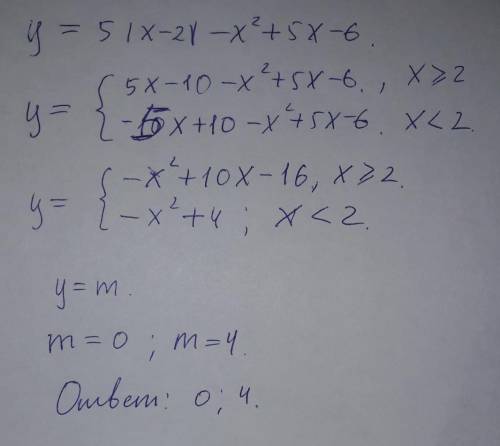 y = 5|x-2| - x² + 5x - 6.
y = { 5x - 10 - x² + 5x - 6. , x ⩾ 2
-5x + 10 - x² + 5x - 6. x < 2.
y = { -x² + 10x - 16, x ⩾ 2.
-x² + 4 ; x < 2.
y = m.
m = 0 ; m = 4.
Ответ: 0; 4.